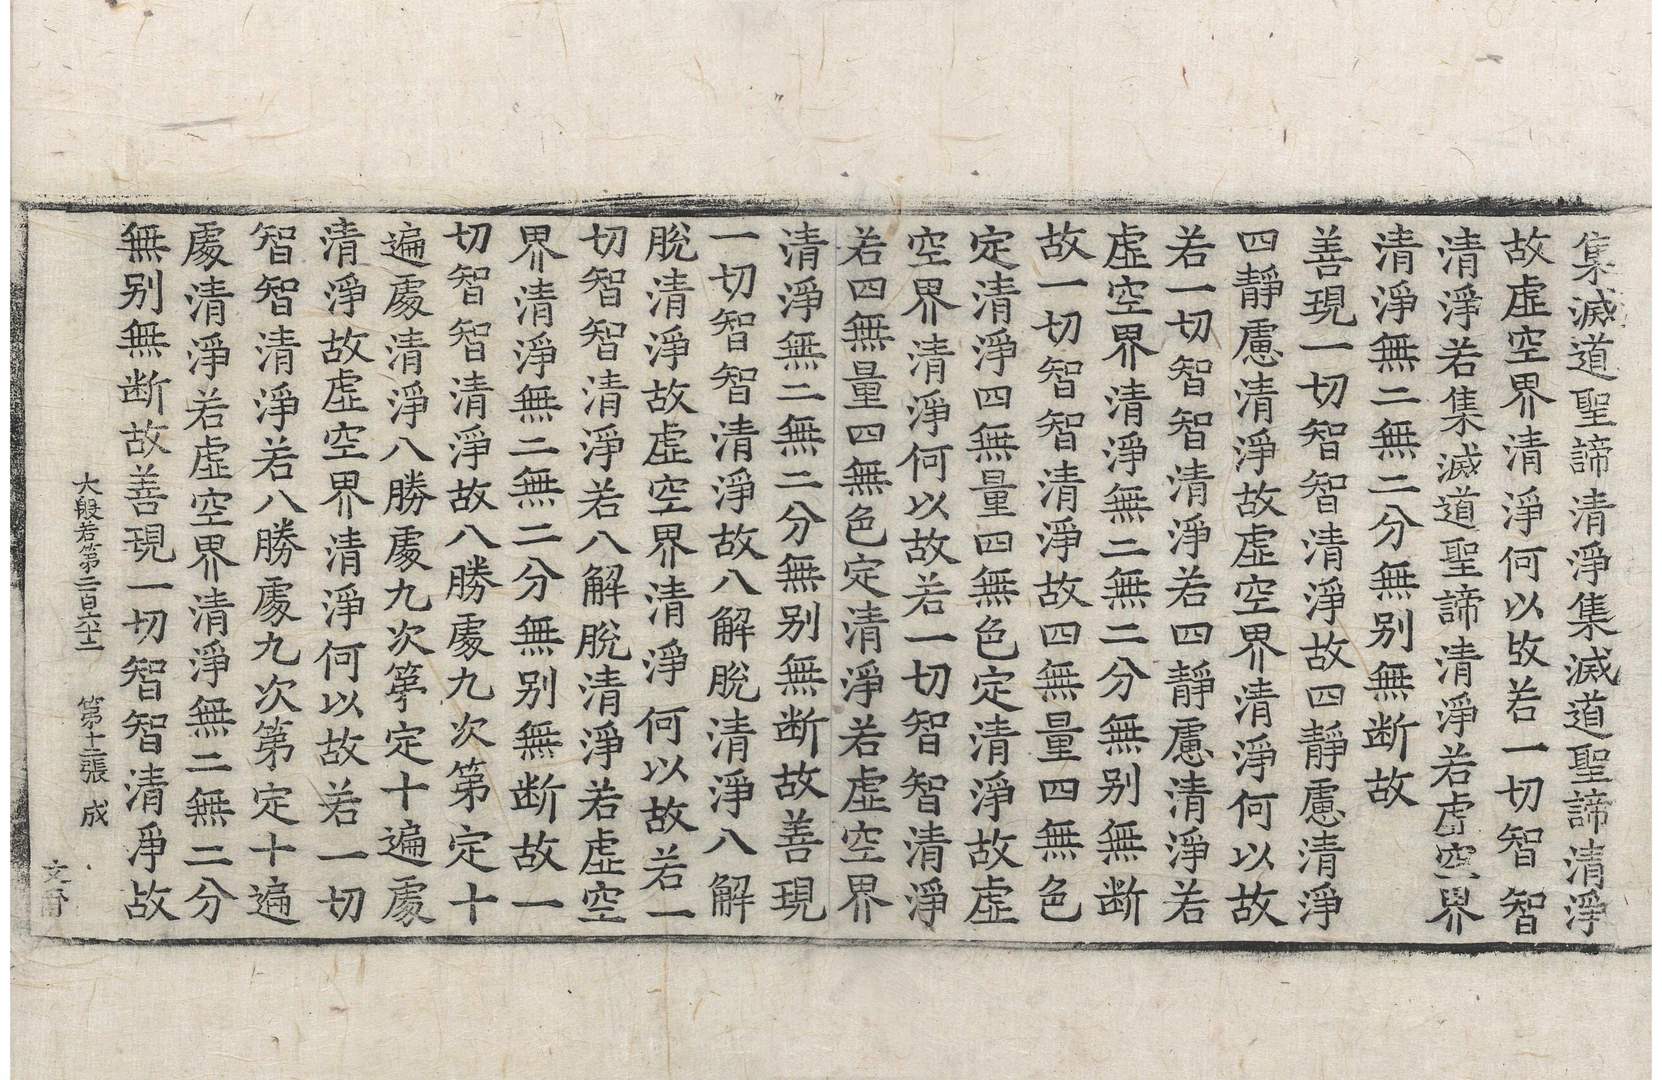 集滅道聖諦清淨集滅道聖諦清淨
故虛空界清淨何以故若一切智智
清淨若集滅道聖諦清淨若虛空界
清淨無二無二分無別無断故
善現一切智智清淨故四靜慮清淨
四靜慮清淨故虛空界清淨何以故
若一切智智清淨若四靜慮清淨若
虛空界清淨無二無二分無別無断
故一切智智清淨故四無量四無色
定清淨四無量四無色定清淨故虛
空界清淨何以故若一切智智清淨
若四無量四無色定清淨若虛空界
清淨無二無二分無別無断故善現
一切智智清淨故八解脫清淨八解
脫清淨故虛空界清淨何以故若一
切智智清淨若八解脫清淨若虛空
界清淨無二無二分無別無断故一
切智智清淨故八勝處九次第定十
遍處清淨八勝處九次第定十遍處
清淨故虛空界清淨何以故若一切
智智清淨若八勝處九次第定十遍
處清淨若虛空界清淨無二無二分
無別無断故善現一切智智清淨故
大般若第二百六十二 第十二張 成